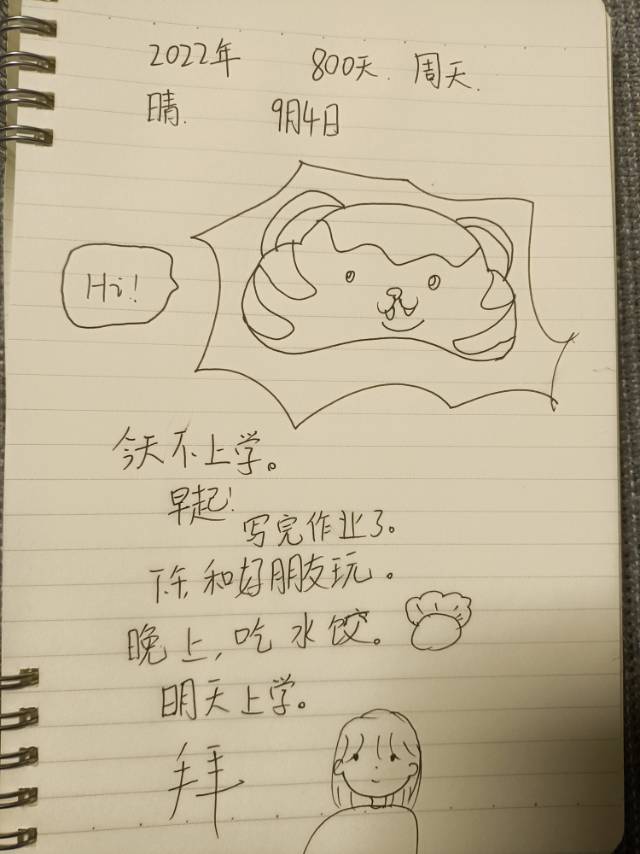 2022年 800天. 周天.
晴. 9月4日
Hi!
今天不上学。
早起! 写完作业了。
下午, 和好朋友玩。
晚上, 吃水饺。
明天上学。
拜